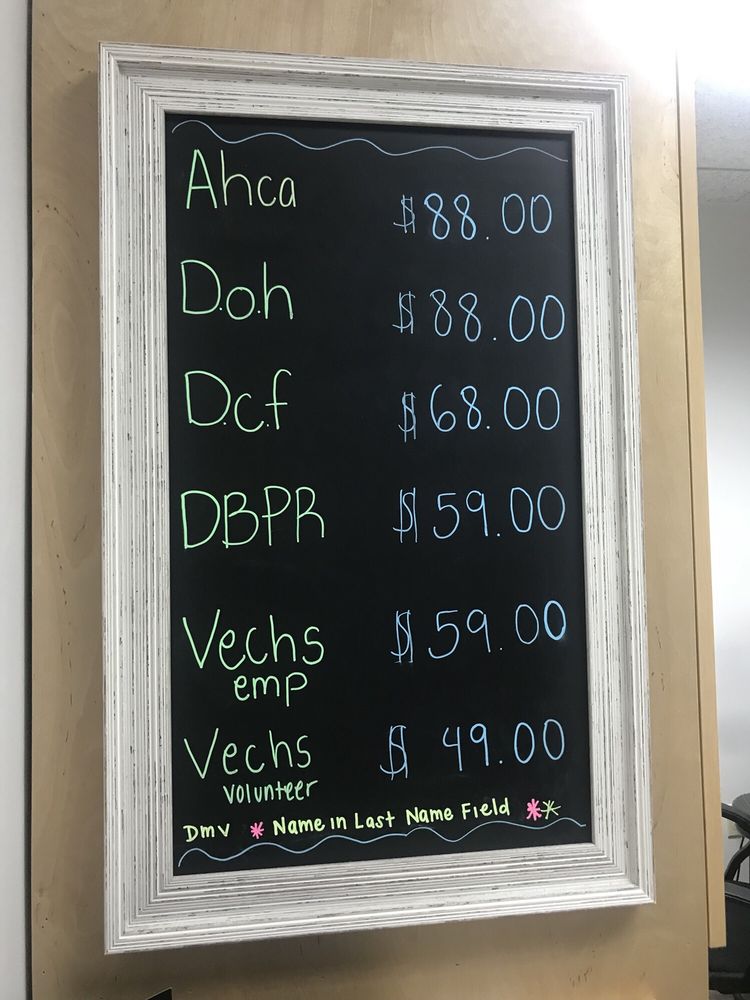 Ahca $88.00
D.o.h $88.00
D.c.f $68.00
DBPR $59.00
Vechs $59.00
emp
Vechs $ 49.00
volunteer
Dmv * Name in Last Name Field **